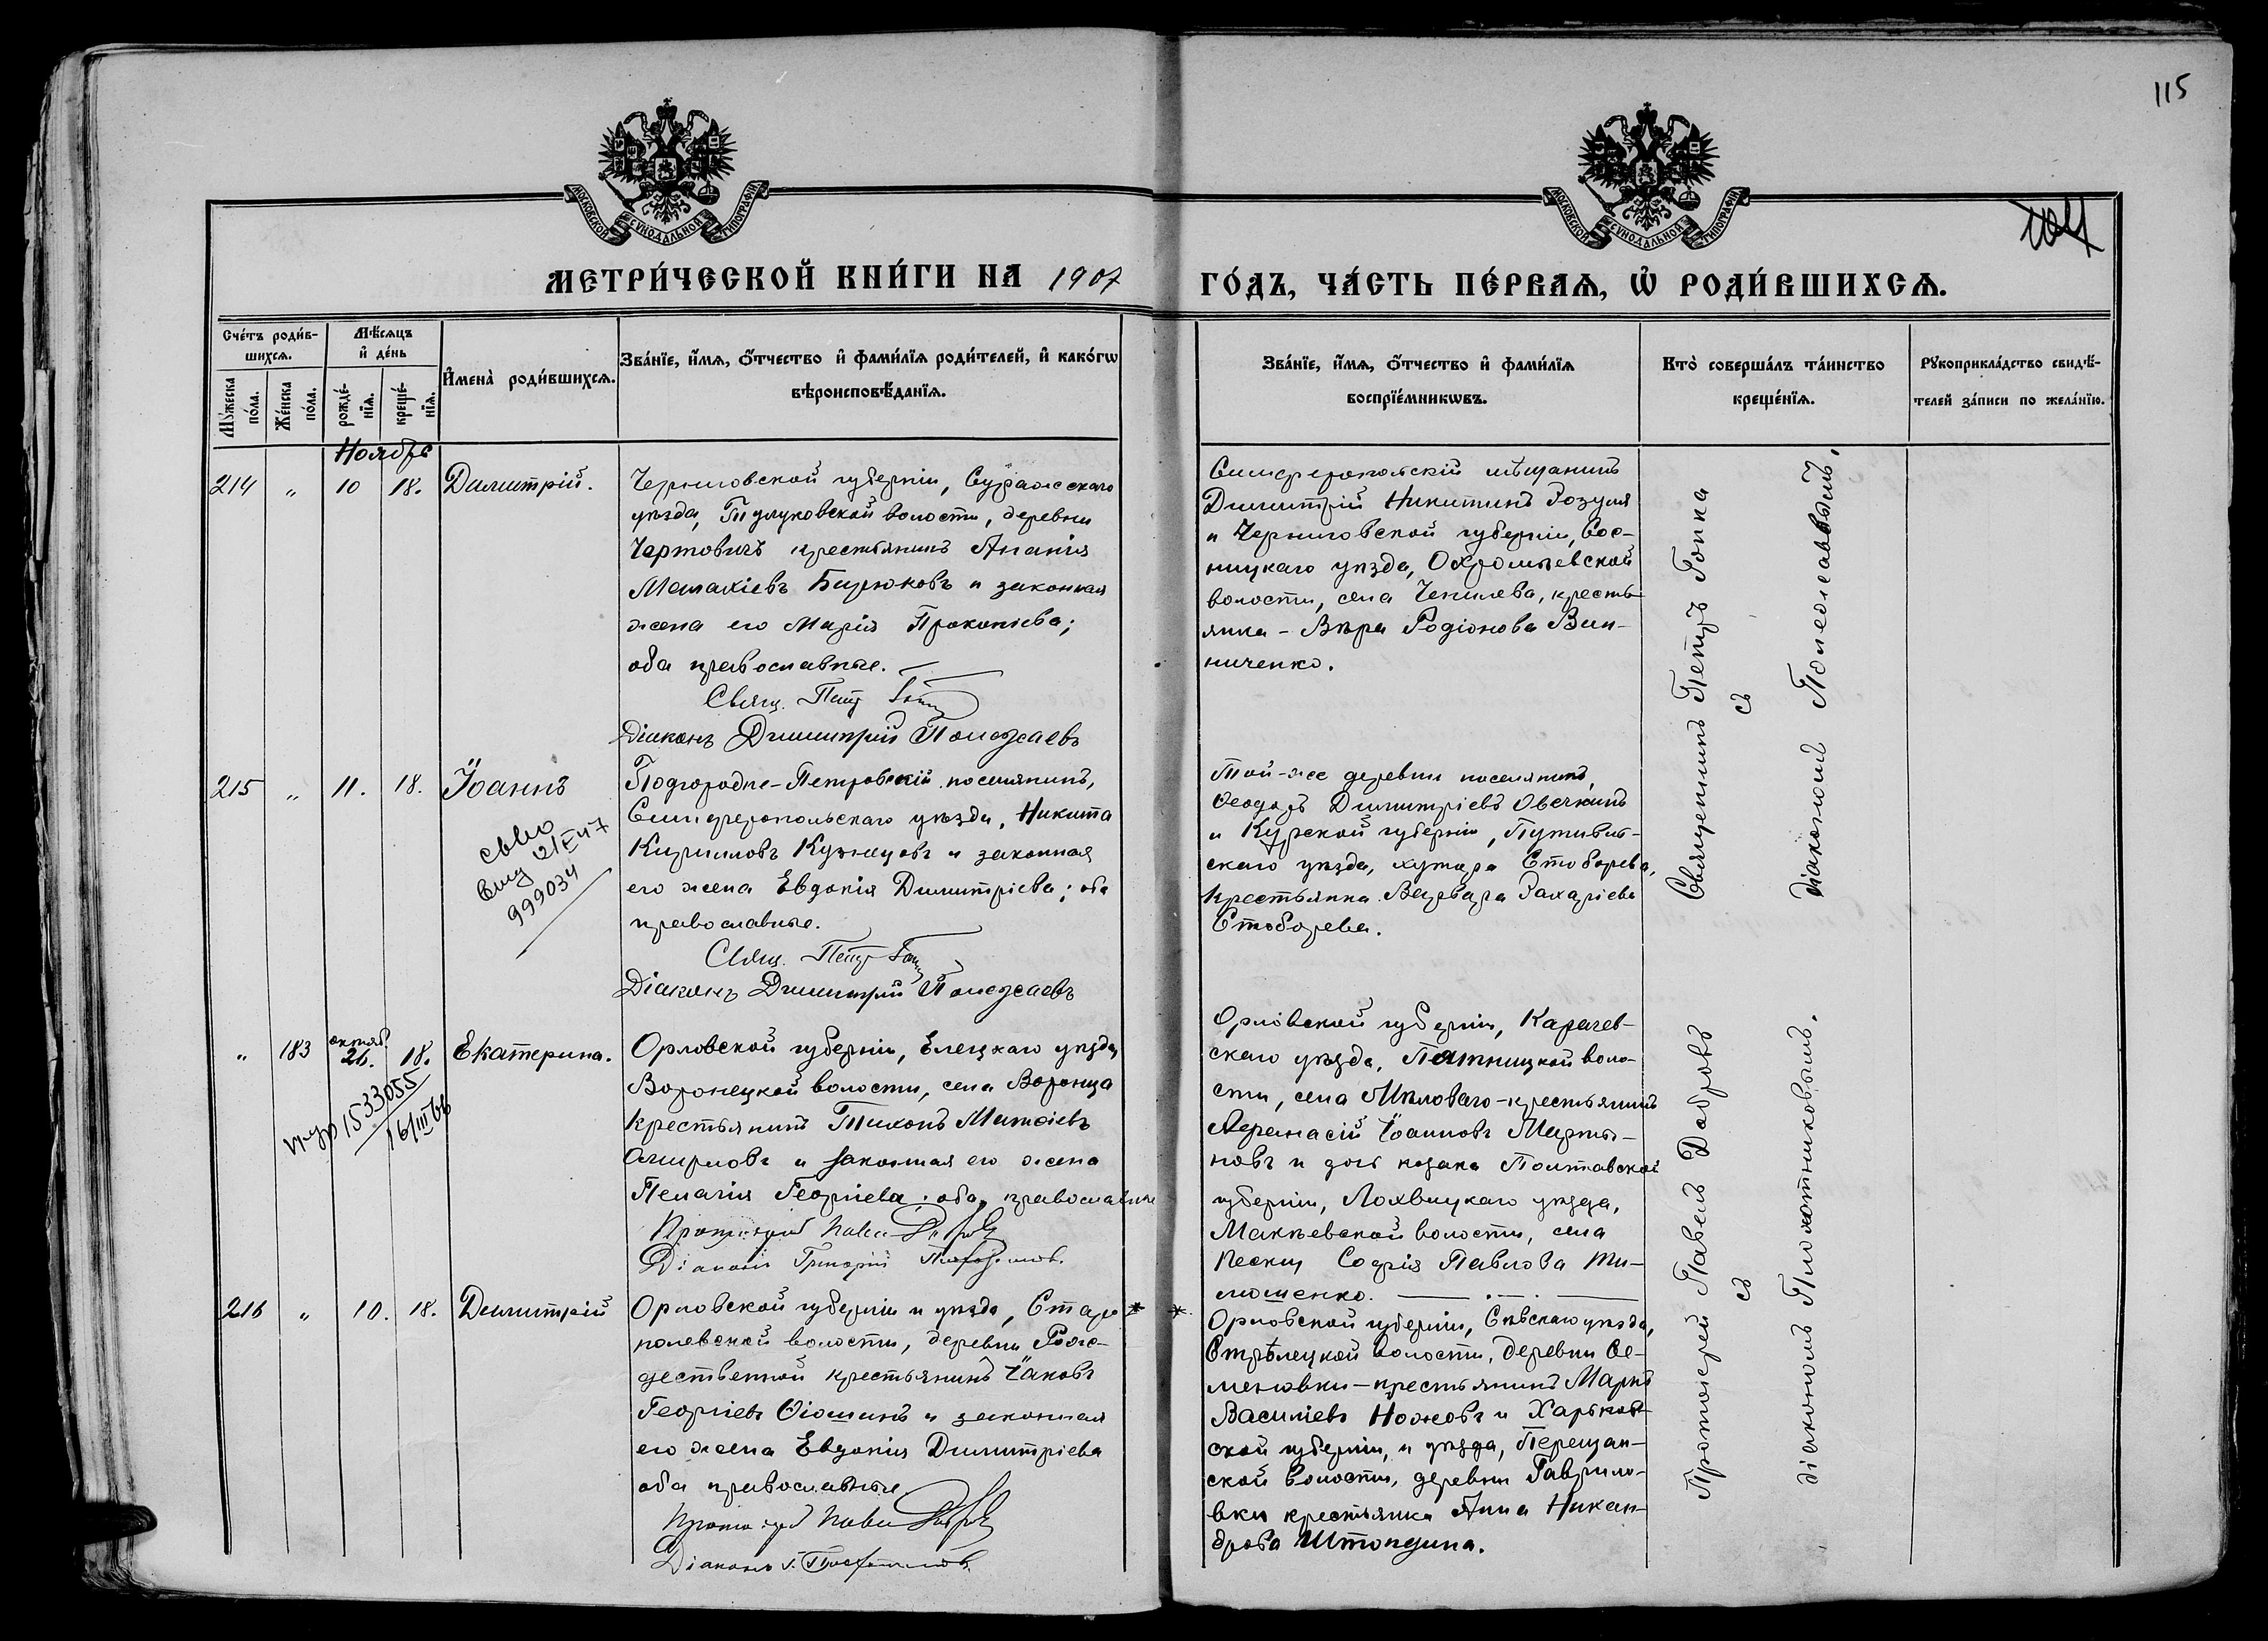 115
МОСКОВСКОЙ СѴНОДАЛЬНОЙ ТИПОГРАФІИ
МОСКОВСКОЙ СѴНОДАЛЬНОЙ ТИПОГРАФІИ
104
МЕТРИ́ЧЕСКОЙ КНИ́ГИ НА 1907
ГО́ДЪ, ЧА́СТЬ ПЕ́РВАѦ, Ѡ҆ РОДИ́ВШИХСѦ.
Сче́тъ роди́в-
шихсѧ.
Мѣ́сѧцъ
и҆ де́нь
Мꙋ́жеска
по́ла.
Же́нска
по́ла.
рожде́-
нїѧ.
креще́-
нїѧ.
И҆мена̀ роди́вшихсѧ.
Зва́нїе, и҆́мѧ, ѻ҆́тчество и҆ фами́лїѧ роди́телей, и҆ како́гѡ
вѣроисповѣ́данїѧ.
Зва́нїе, и҆́мѧ, ѻ҆́тчество и҆ фами́лїѧ
воспрїе́мникѡвъ.
Кто̀ соверша́лъ та́инство
креще́нїѧ.
Рꙋкоприкла́дство свидѣ́-
телей за́писи по жела́нїю.
Ноябрь
214 " 10 18. Димитрій.
Черниговской губерніи, Суражскаго
уѣзда, волости, деревни
Чертовичъ крестьянинъ Ананія
Малахіевъ Бирюковъ и законная
жена его Марія Прокопіева;
оба православные.
Свящ. Петр
Діаконъ Димитрій Полежаевъ
Симферопольскій мѣщанинъ
Димитрій Никитинъ Розуля
и Черниговской губерніи, Сос-
ницкаго уѣзда, Охромѣевской
волости, села Чепилева, кресть-
янка - Вѣра Родіонова Вин-
ниченко.
Священникъ Петръ Гопка
съ
діакономъ Полежаевымъ.
215 " 11. 18. Іоаннъ
999034
Подгородне-Петровскій поселянинъ,
Симферопольскаго уѣзда, Никита
Кирилловъ Кузнецовъ и законная
его жена Евдокія Димитріева; оба
православные.
Свящ. Петр
Діаконъ Димитрій Полежаевъ
Той-же деревни поселянинъ
Ѳеодоръ Димитріевъ Овечкинъ
и Курской губерніи, Путивль-
скаго уѣзда, хутора Стоборева,
крестьянка Варвара Захаріева
Стоборева.
" 183 октяб. 26. 18. Екатерина.
1533055
16/III 66
Орловской губерніи, Елецкаго уѣзда,
Воронецкой волости, села Воронца
крестьянинъ Тихонъ
и законная его жена
Пелагія Георгіева; оба православные
Протоіерей Павел Добров
Діаконъ Григорій
Орловской губерніи, Карачев-
скаго уѣзда, Пятницкой воло-
сти, села Мѣловаго - крестьянинъ
Аѳанасій Іоанновъ Марты-
новъ и дочь козака Полтавской
губерніи, Лохвицкаго уѣзда,
Макѣевской волости, села
Пески Софія Павлова Ти-
мошенко.
Протоіерей Павелъ Добровъ
съ
діакономъ Плохотниковымъ.
216 " 10. 18. Димитрій
Орловской губерніи и уѣзда, Старо *
полевской волости, деревни Рож-
дественной крестьянинъ Іаковъ
Георгіевъ Ѳіошинъ и законная
его жена Евдокія Димитріева
оба православные
Протоіерей Павел Добров
Діаконъ Г.
* Орловской губерніи, Сѣвскаго уѣзда,
Стрѣлецкой волости, деревни Се-
меновки - крестьянинъ Маркъ
Василіевъ Ножовъ и Харьков-
ской губерніи, и уѣзда, Перещан-
ской волости, деревни Гаврило-
вки крестьянка Анна Никан-
дрова Штопдина.